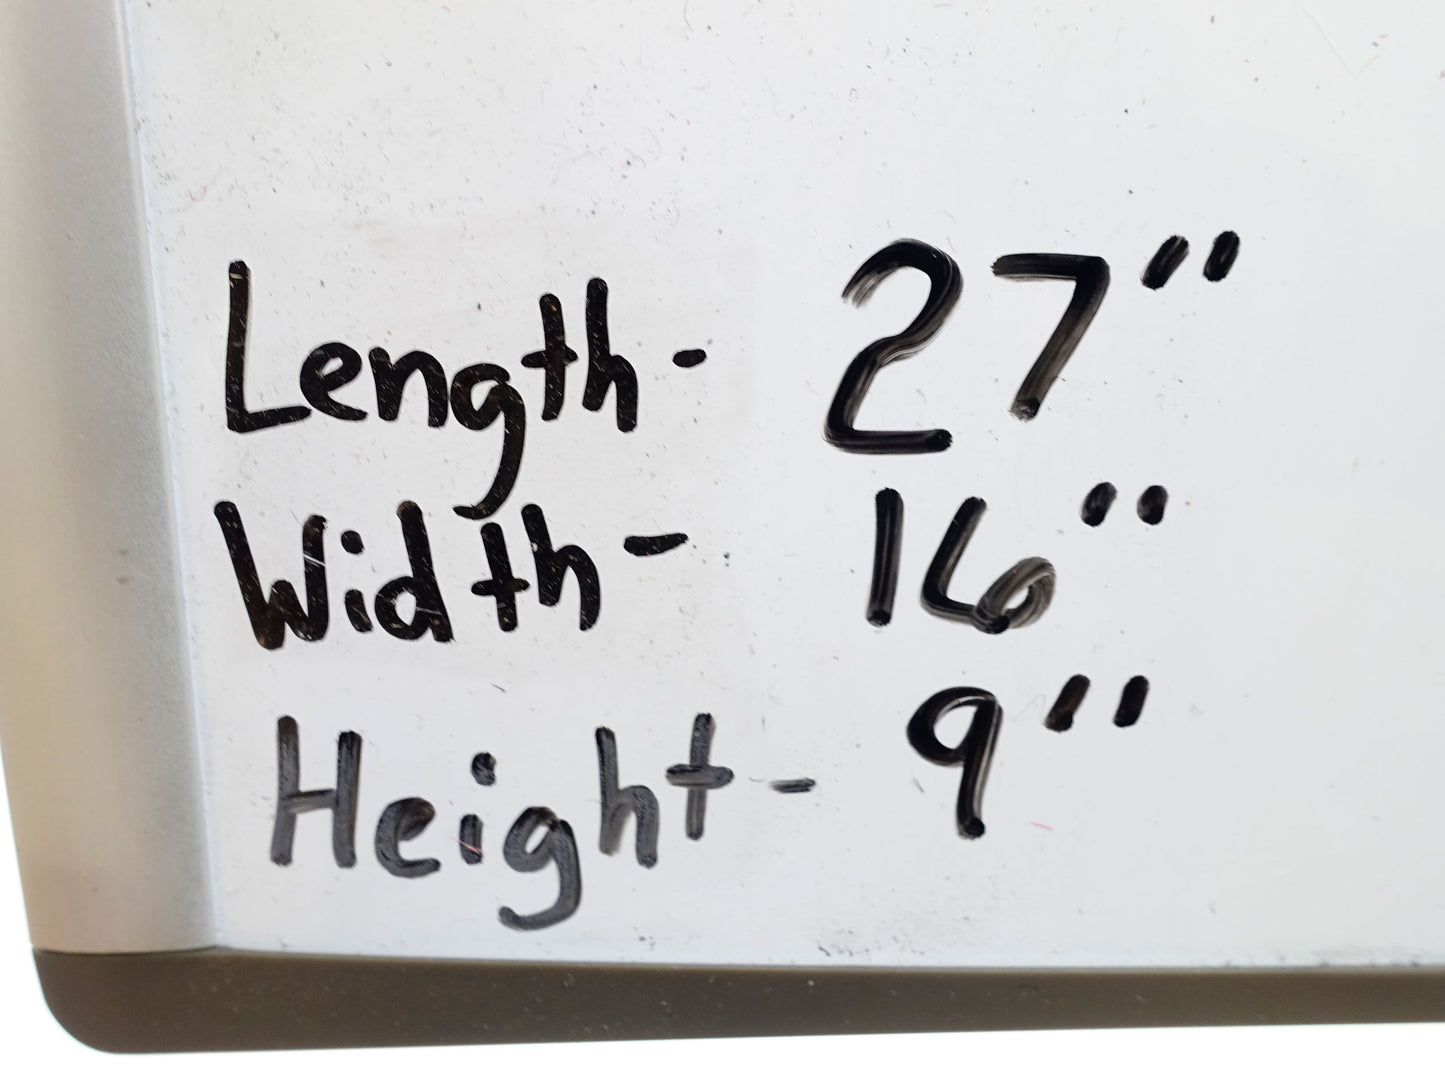 Length- 27"
Width- 16"
Height- 9"